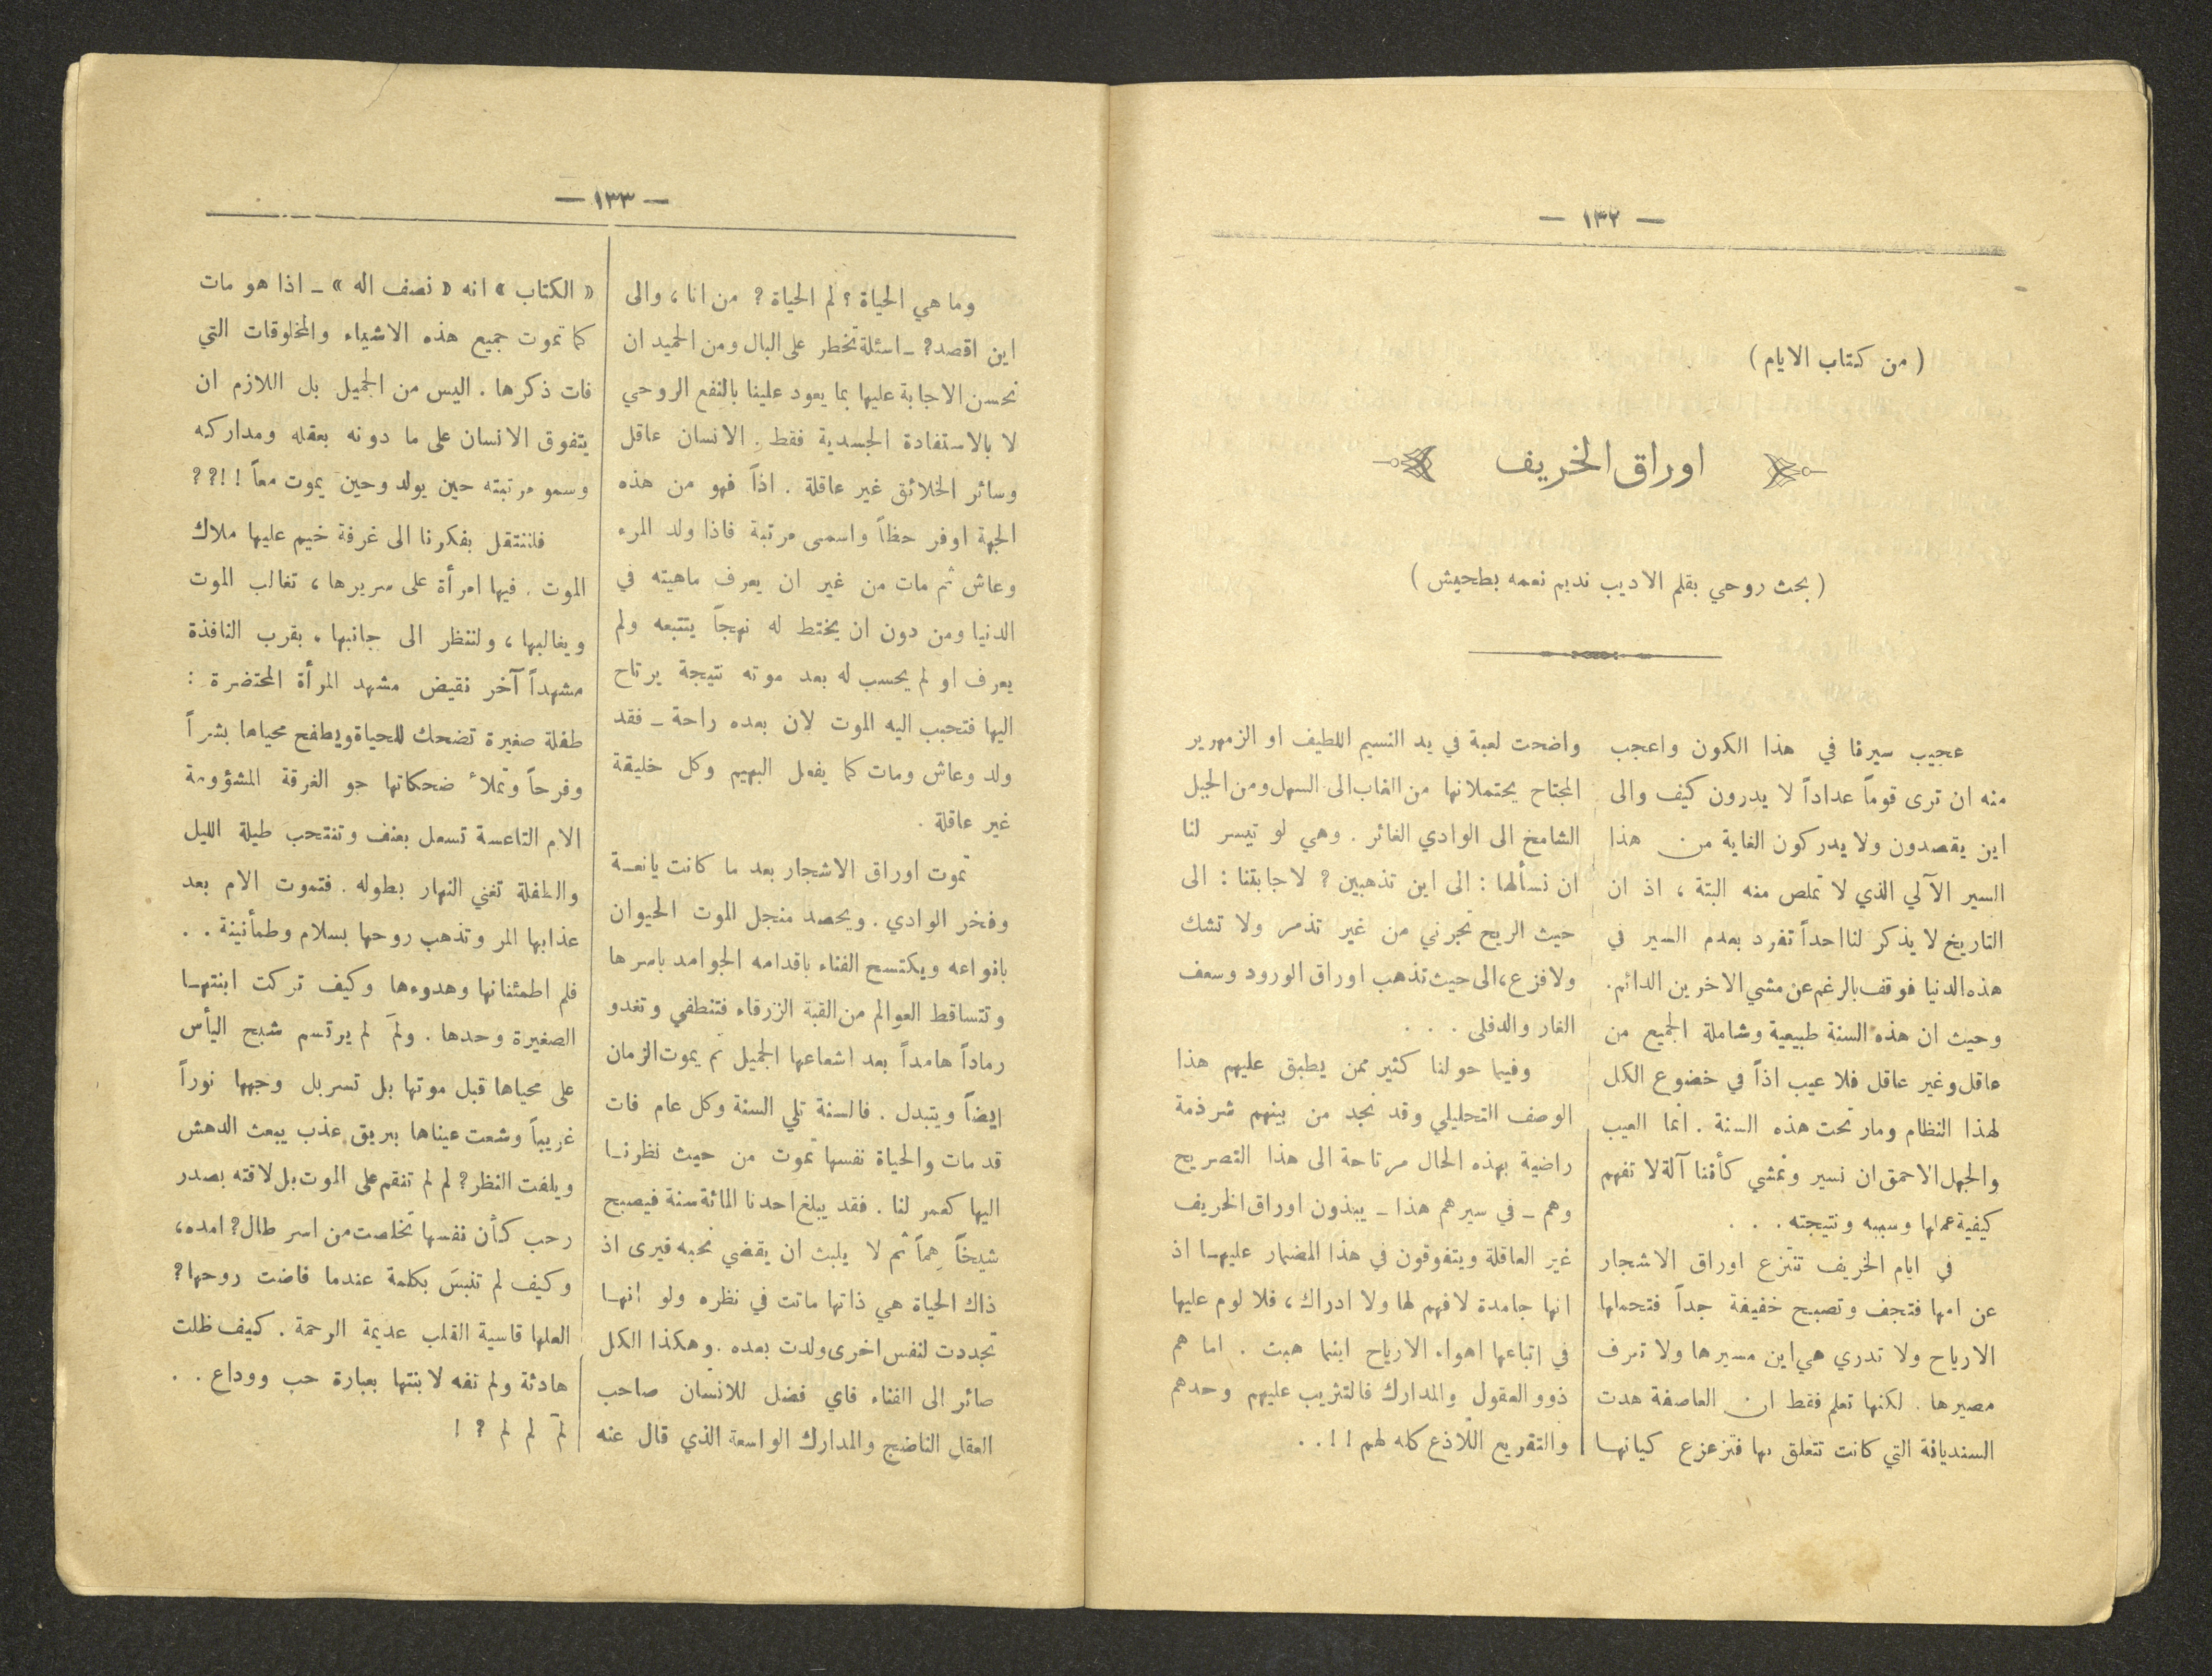 — ١٣٢ —
( من كتاب الايام )
اوراق الخريف
( بحث روحي بقلم الاديب نديم نعمه بطحيش )
عجيب سيرنا في هذا الكون واعجب
منه ان ترى قوماً عداداً لا يدرون كيف والى
اين يقصدون ولا يدركون الغاية من هذا
السير الآلي الذي لا تملص منه البتة ، اذ ان
التاريخ لا يذكر لنا احداً تفرد بعدم السير في
هذه الدنيا فوقف بالرغم عن مشي الاخرين الدائم.
وحيث ان هذه السنة طبيعية وشاملة الجميع من
عاقل وغير عاقل فلا عيب اذاً في خضوع الكل
لهذا النظام ومار تحت هذه السنة . انما العيب
والجهل الاحمق ان نسير ونمشي كأننا آلة لا تفهم
كيفية عملها وسببه ونتيجته . . .
في ايام الخريف تنتزع اوراق الاشجار
عن امها فتجف وتصبح خفيفة جداً فتحملها
الارياح ولا تدري هي اين مسيرها ولا تعرف
مصيرها . لكنها تعلم فقط ان العاصفة هدت
السنديانة التي كانت تتعلق بها فتزعزع كيانها
واضحت لعبة في يد النسيم اللطيف او الزمهرير
المجتاح يحتملانها من الغاب الى السهل ومن الجبل
الشامخ الى الوادي الغائر . وهي لو تيسر لنا
ان نسألها : الى اين تذهبين ? لاجابتنا : الى
حيث الريح تجرني من غير تذمر ولا تشك
ولا فزع ، الى حيث تذهب اوراق الورود وسعف
الغار والدفلى . . .
وفيما حولنا كثير ممن يطبق عليهم هذا
الوصف التحليلي وقد نجد من بينهم شرذمة
راضية بهذه الحال مرتاحة الى هذا التصريح
وهم ـ في سيرهم هذا ـ يبذون اوراق الخريف
غير العاقلة ويتفوقون في هذا المضمار عليها اذ
انها جامدة لا فهم لها ولا ادراك ، فلا لوم عليها
في اتباعها اهواء الارياح اينما هبت . اما هم
ذوو العقول والمدارك فالتثريب عليهم وحدهم
والتقريع اللاذع كله لهم ! ! . .
— ١٣٣ —
وما هي الحياة ؟ لم الحياة ? من انا ، والى
اين اقصد? ـ اسئلة تخطر على البال ومن الحميد ان
نحسن الاجابة عليها بما يعود علينا بالنفع الروحي
لا بالاستفادة الجسدية فقط . الانسان عاقل
وسائر الخلائق غير عاقلة . اذاً فهو من هذه
الجهة اوفر حظاً واسمى مرتبة فاذا ولد المرء
وعاش ثم مات من غير ان يعرف ماهيته في
الدنيا ومن دون ان يختط له نهجاً يتتبعه ولم
يعرف او لم يحسب له بعد موته نتيجة يرتاح
اليها فتحبب اليه الموت لان بعده راحة ـ فقد
ولد وعاش ومات كما يفعل البهيم وكل خليقة
غير عاقلة .
تموت اوراق الاشجار بعد ما كانت يانعة
وفخر الوادي . ويحصد منجل الموت الحيوان
بانواعه ويكتسح الفناء باقدامه الجوامد باسرها
وتتساقط العوالم من القبة الزرقاء فتنطفي وتغدو
رماداً هامداً بعد اشعاعها الجميل ثم يموت الزمان
ايضاً ويتبدل . فالسنة تلي السنة وكل عام فات
قد مات والحياة نفسها تموت من حيث نظرنا
اليها كعمر لنا . فقد يبلغ احدنا المائة سنة فيصبح
شيخاً هِماً ثم لا يلبث ان يقضي نحبه فيرى اذ
ذاك الحياة هي ذاتها ماتت في نظره ولو انها
تجددت لنفس اخرى ولدت بعده . وهكذا الكل
صائر الى الفناء فاي فضل للانسان صاحب
العقل الناضج والمدارك الواسعة الذي قال عنه
« الكتاب » انه « نصف اله » ـ اذا هو مات
كما تموت جميع هذه الاشياء والمخلوقات التي
فات ذكرها . اليس من الجميل بل اللازم ان
يتفوق الانسان على ما دونه بعقله ومداركه
وسمو مرتبته حين يولد وحين يموت معاً ! ! ? ?
فلننتقل بفكرنا الى غرفة خيم عليها ملاك
الموت . فيها امرأة على سريرها ، تغالب الموت
ويغالبها ، ولننظر الى جانبها . بقرب النافذة
مشهداً آخر نقيض مشهد المرأة المحتضرة :
طفلة صغيرة تضحك للحياة ويطفح محياها بشراً
وفرحاً وتملأ ضحكاتها جو الغرفة المشؤومة
الام التاعسة تسعل بعنف وتنتحب طيلة الليل
والطفلة تغني النهار بطوله . فتموت الام بعد
عذابها المر وتذهب روحها بسلام وطمأنينة . .
فلم اطمئنانها وهدوءها وكيف تركت ابنتها
الصغيرة وحدها . ولمَ لم يرتسم شبح اليأس
على محياها قبل موتها بل تسربل وجهها نوراً
غريباً وشعت عيناها ببريق عذب يبعث الدهش
ويلفت النظر ? لم لم تنقم على الموت بل لاقته بصدر
رحب كأن نفسها تخلصت من اسر طال ? امده ،
وكيف لم تنبسَ بكلمة عندما فاضت روحها ?
العلها قاسية القلب عديمة الرحمة . كيف ظلت
هادئة ولم تفه لابنتها بعبارة حب ووداع . .
لمَ لم لم ? !